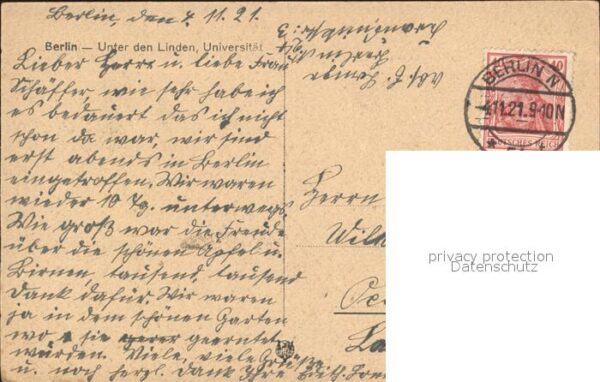 Berlin, den 4. 11. 21.
Berlin — Unter den Linden, Universität
Lieber Herr u. liebe Frau
Schäffer wie sehr habe ich
es bedauert das ich nicht
schon da war, wir sind
erst abends in Berlin
eingetroffen. Wir waren
wieder 10 Tg. unterwegs
Wie groß war die Freude
über die schönen Äpfel u.
Birnen tausend, tausend
Dank dafür. Wir waren
ja in dem schönen Garten
wo sie geerntet
würden. Viele, viele Grüße
u. noch herzl. Dank Ihre
BERLIN N
4.11.21.9-10N
40
DEUTSCHES REICH
Herrn
Wilh
privacy protection
Datenschutz